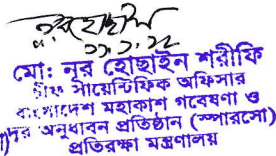 নূর হোছাইন
মো: নূর হোছাইন শরীফি
চীফ সায়েন্টিফিক অফিসার
বাংলাদেশ মহাকাশ গবেষণা ও
দূর অনুধাবন প্রতিষ্ঠান (স্পারসো)
প্রতিরক্ষা মন্ত্রণালয়